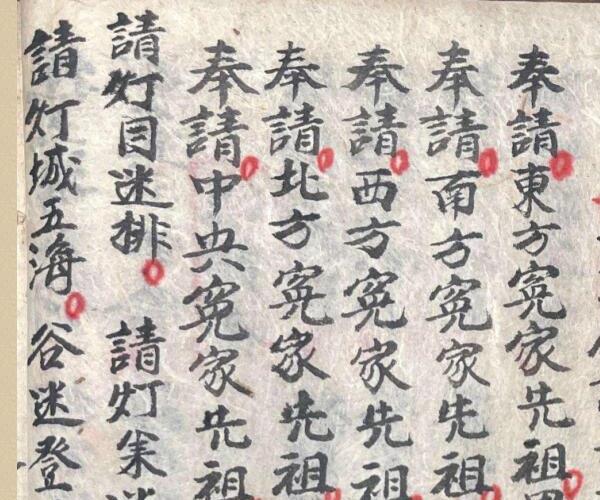 奉請東方冤家先祖
奉請南方冤家先祖
奉請西方冤家先祖
奉請北方冤家先祖
奉請中央冤家先祖
請灯目迷排 請灯米
請灯城五海 谷迷登